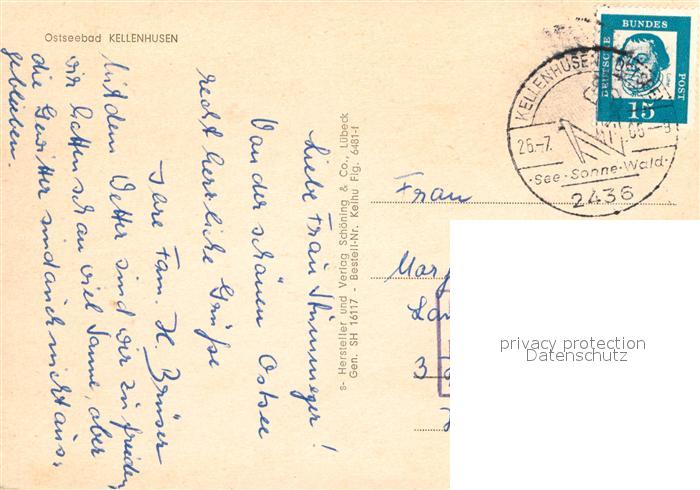 Ostseebad KELLENHUSEN
Liebe Frau Stümmeger!
Von der schönen Ostsee
recht herrliche Grüße
Ihre Fam. H. Brüser
Mit dem Wetter sind wir zufrieden,
wir hatten schon viel Sonne, aber
die Gewitter sind auch nicht aus=
geblieben.
s- Hersteller und Verlag Schöning & Co., Lübeck
Gen. SH 16117 - Bestell-Nr. Kelhu Flg. 6481-f
DEUTSCHE BUNDES POST
15
KELLENHUSEN
26.-7.
·See·Sonne·Wald·
2436
Frau
privacy protection
Datenschutz